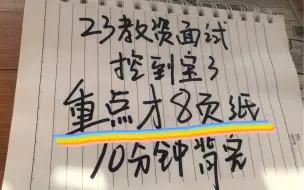 23教资面试
挖到宝了
重点才8页纸
10分钟背完